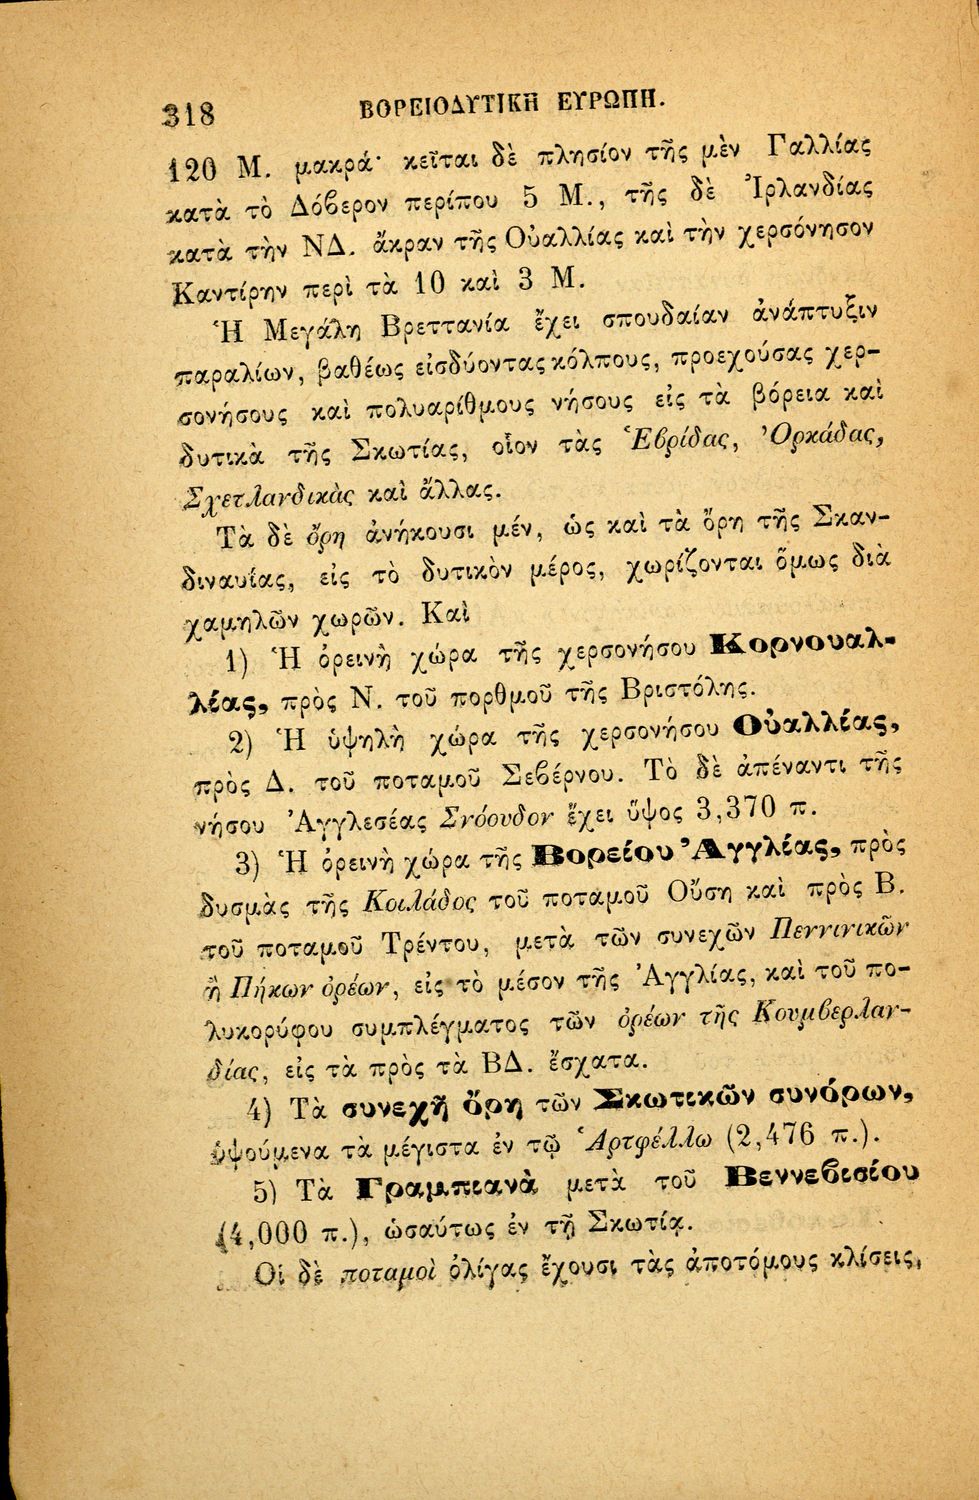 318 ΒΟΡΕΙΟΔΥΤΙΚΗ ΕΥΡΩΠΗ.
120 Μ. μακρά· κεῖται δὲ πλησίον τῆς μὲν Γαλλίας
κατὰ τὸ Δόβερον περίπου 5 Μ., τῆς δὲ Ἰρλανδίας
κατὰ τὴν ΝΔ. ἄκραν τῆς Οὐαλλίας καὶ τὴν χερσόνησον
Καντίρην περὶ τὰ 10 καὶ 3 Μ.
Ἡ Μεγάλη Βρεττανία ἔχει σπουδαίαν ἀνάπτυξιν
παραλίων, βαθέως εἰσδύοντας κόλπους, προεχούσας χερ-
σονήσους καὶ πολυαρίθμους νήσους εἰς τὰ βόρεια καὶ
δυτικὰ τῆς Σκωτίας, οἷον τὰς Ἑβρίδας, Ὀρκάδας,
Σχετλανδικὰς καὶ ἄλλας.
Τὰ δὲ ὄρη ἀνήκουσι μέν, ὡς καὶ τὰ ὄρη τῆς Σκαν-
διναυίας, εἰς τὸ δυτικὸν μέρος, χωρίζονται ὅμως διὰ
χαμηλῶν χωρῶν. Καὶ
1) Ἡ ὀρεινὴ χώρα τῆς χερσονήσου Κορνουαλ-
λέας, πρὸς Ν. τοῦ πορθμοῦ τῆς Βριστόλης.
2) Ἡ ὑψηλὴ χώρα τῆς χερσονήσου Οὐαλλίας,
πρὸς Δ. τοῦ ποταμοῦ Σεβέρνου. Τὸ δὲ ἀπέναντι τῆς
νήσου Ἀγγλεσέας Σνόουδον ἔχει ὕψος 3,370 π.
3) Ἡ ὀρεινὴ χώρα τῆς Βορείου Ἀγγλίας, πρὸς
δυσμὰς τῆς Κοιλάδος τοῦ ποταμοῦ Οὔση καὶ πρὸς Β.
τοῦ ποταμοῦ Τρέντου, μετὰ τῶν συνεχῶν Πεννινικῶν
ἢ Πήκων ὀρέων, εἰς τὸ μέσον τῆς Ἀγγλίας, καὶ τοῦ πο-
λυκορύφου συμπλέγματος τῶν ὀρέων τῆς Κουμβερλαν-
δίας, εἰς τὰ πρὸς τὰ ΒΔ. ἔσχατα.
4) Τὰ συνεχῆ ὄρη τῶν Σκωτικῶν συνόρων,
ὑψούμενα τὰ μέγιστα ἐν τῷ Ἁρτφέλλω (2,476 π.).
5) Τὰ Γραμπιανὰ μετὰ τοῦ Βεννεβισίου
(4,000 π.), ὡσαύτως ἐν τῇ Σκωτίᾳ.
Οἱ δὲ ποταμοὶ ὀλίγας ἔχουσι τὰς ἀποτόμους κλίσεις,